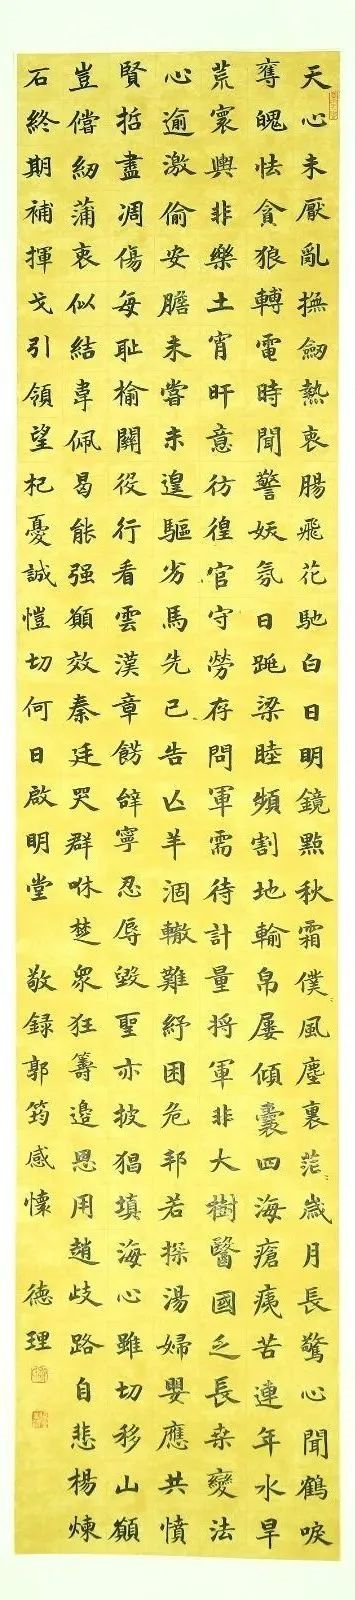 天心未厭亂撫劔熱衷腸飛花馳白日明鏡點秋霜僕〻風塵裏茫〻歲月長驚心聞鶴唳
奪魄怯貪狼轉電時聞警妖氛日跳梁睦頻割地輸帛屢傾囊四海瘡痍苦連年水旱
荒寰輿非樂土宵旰意彷徨官守勞存問軍需待計量將軍非大樹醫國乏長桑變法
心逾激偷安膽未嘗未遑驅劣馬先已告亡羊涸轍難紓困危邦若探湯婦嬰應共憤
賢哲盡凋傷每恥榆關役行看雲漢章餝辭寧忍辱毀聖亦披猖填海心雖切移山願
豈償紉蒲衷似結韋佩曷能强願效秦廷哭群咻楚衆狂籌邊思用趙歧路自悲楊煉
石終期補揮戈引領望杞憂誠愷切何日啟明堂 敬録郭筠感懷 德理